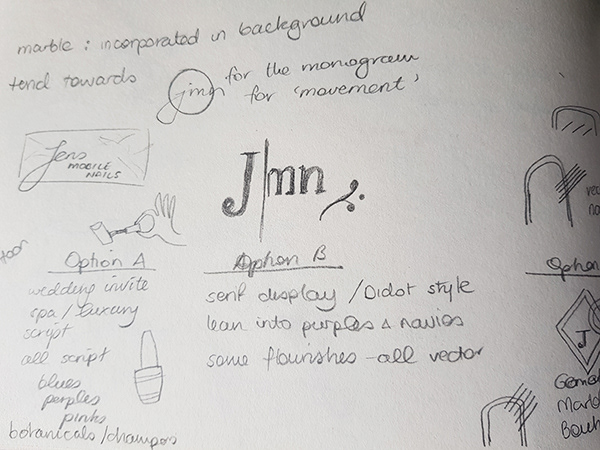 marble : incorporated in background
tend towards jmn for the monogram
for 'movement'
Jens
MOBILE
NAILS
J|mn
Option A
wedding invite
spa / luxury
script
all script
blues
purples
pinks
botanicals/
Option B
serif display / Didot style
lean into purples & navies
some flourishes - all vector
Option
J